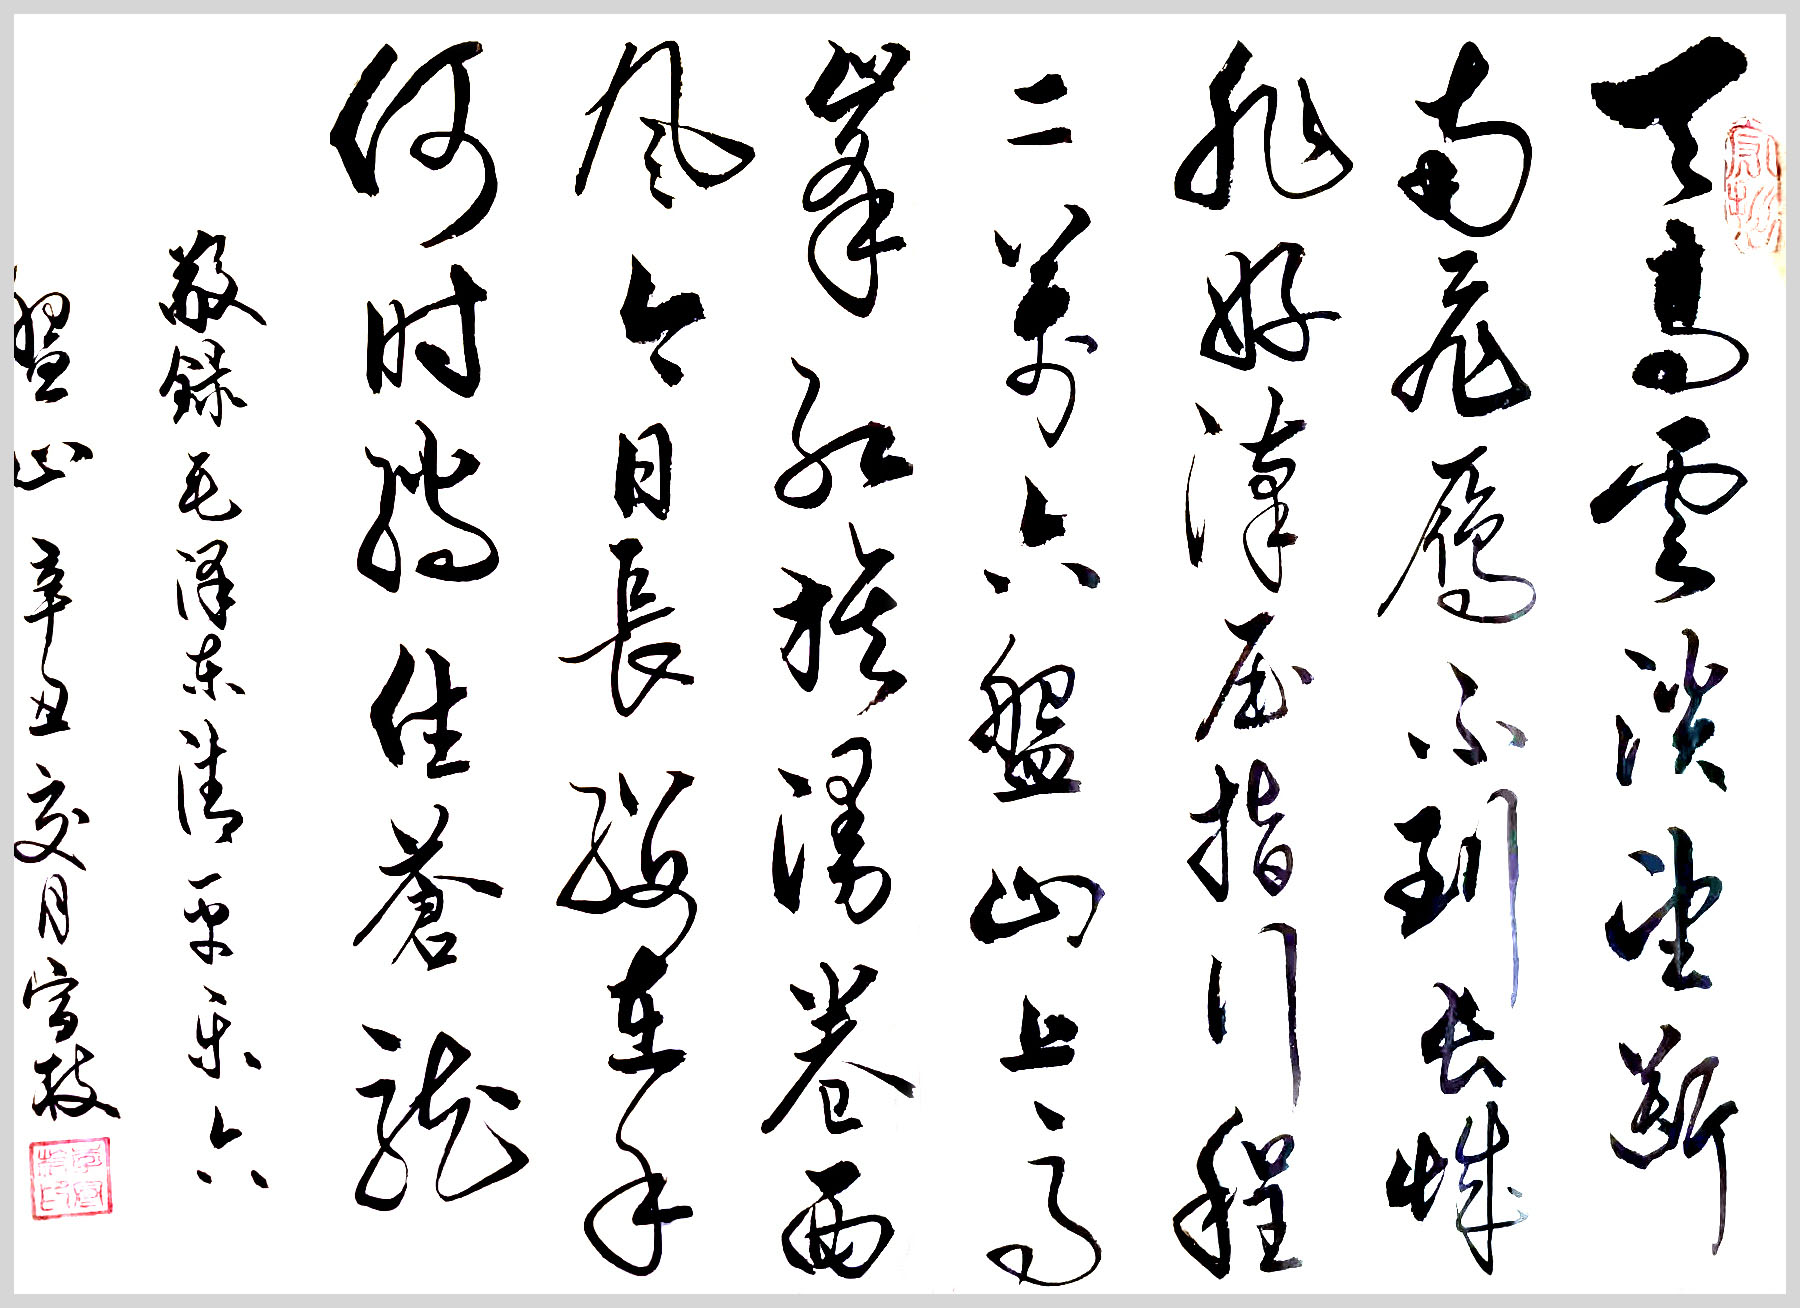 天高雲淡望斷
南飛雁不到長城
非好漢屈指行程
二萬六盤山上高
峯紅旗漫卷西
風今日長纓在手
何时縛住蒼龍
敬錄毛泽东清平乐六
盤山辛丑夏月